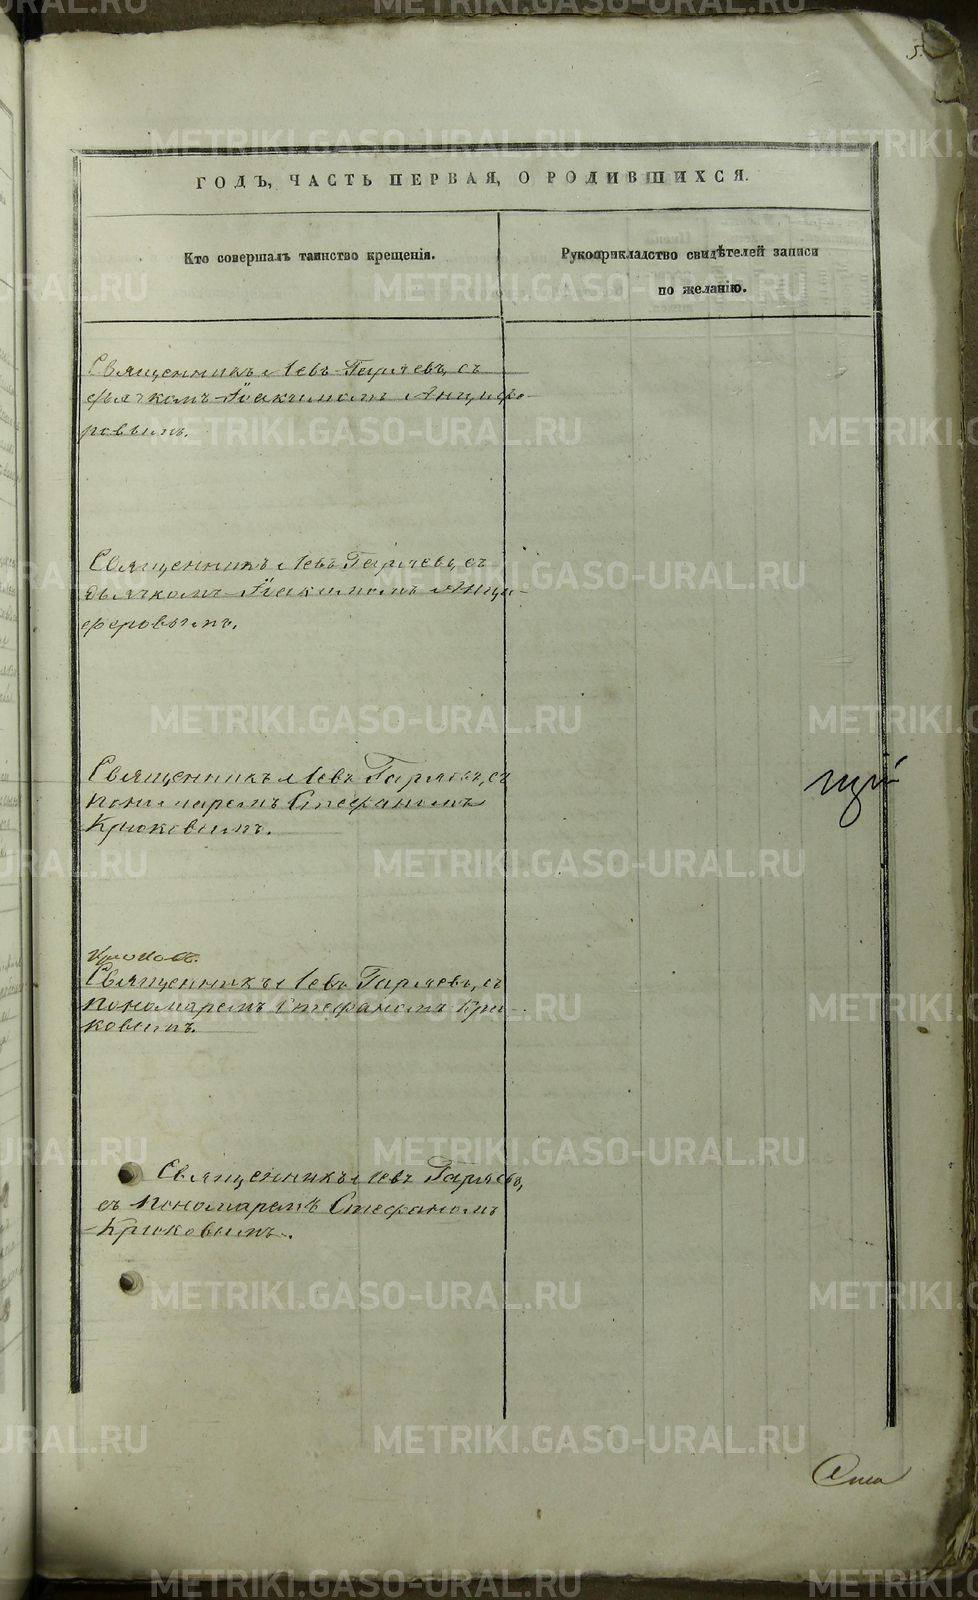 5.
ГОДЪ, ЧАСТЬ ПЕРВАЯ, О РОДИВШИХСЯ.
Кто совершалъ таинство крещенія.
Рукоприкладство свидѣтелей записи
по желанію.
Священникъ Левъ Гаряевъ, съ
дьячкомъ Іоакимомъ Анцифе-
ровымъ.
Священникъ Левъ Гаряевъ, съ
дьячкомъ Іоакимомъ Анци-
феровымъ.
Священникъ Левъ Гаряевъ, съ
пономаремъ Стефаномъ
Крюковымъ.
Священникъ Левъ Гаряевъ, съ
пономаремъ Стефаномъ Крю-
ковымъ.
Священникъ Левъ Гаряевъ,
съ пономаремъ Стефаномъ
Крюковымъ.
METRIKI.GASO-URAL.RU